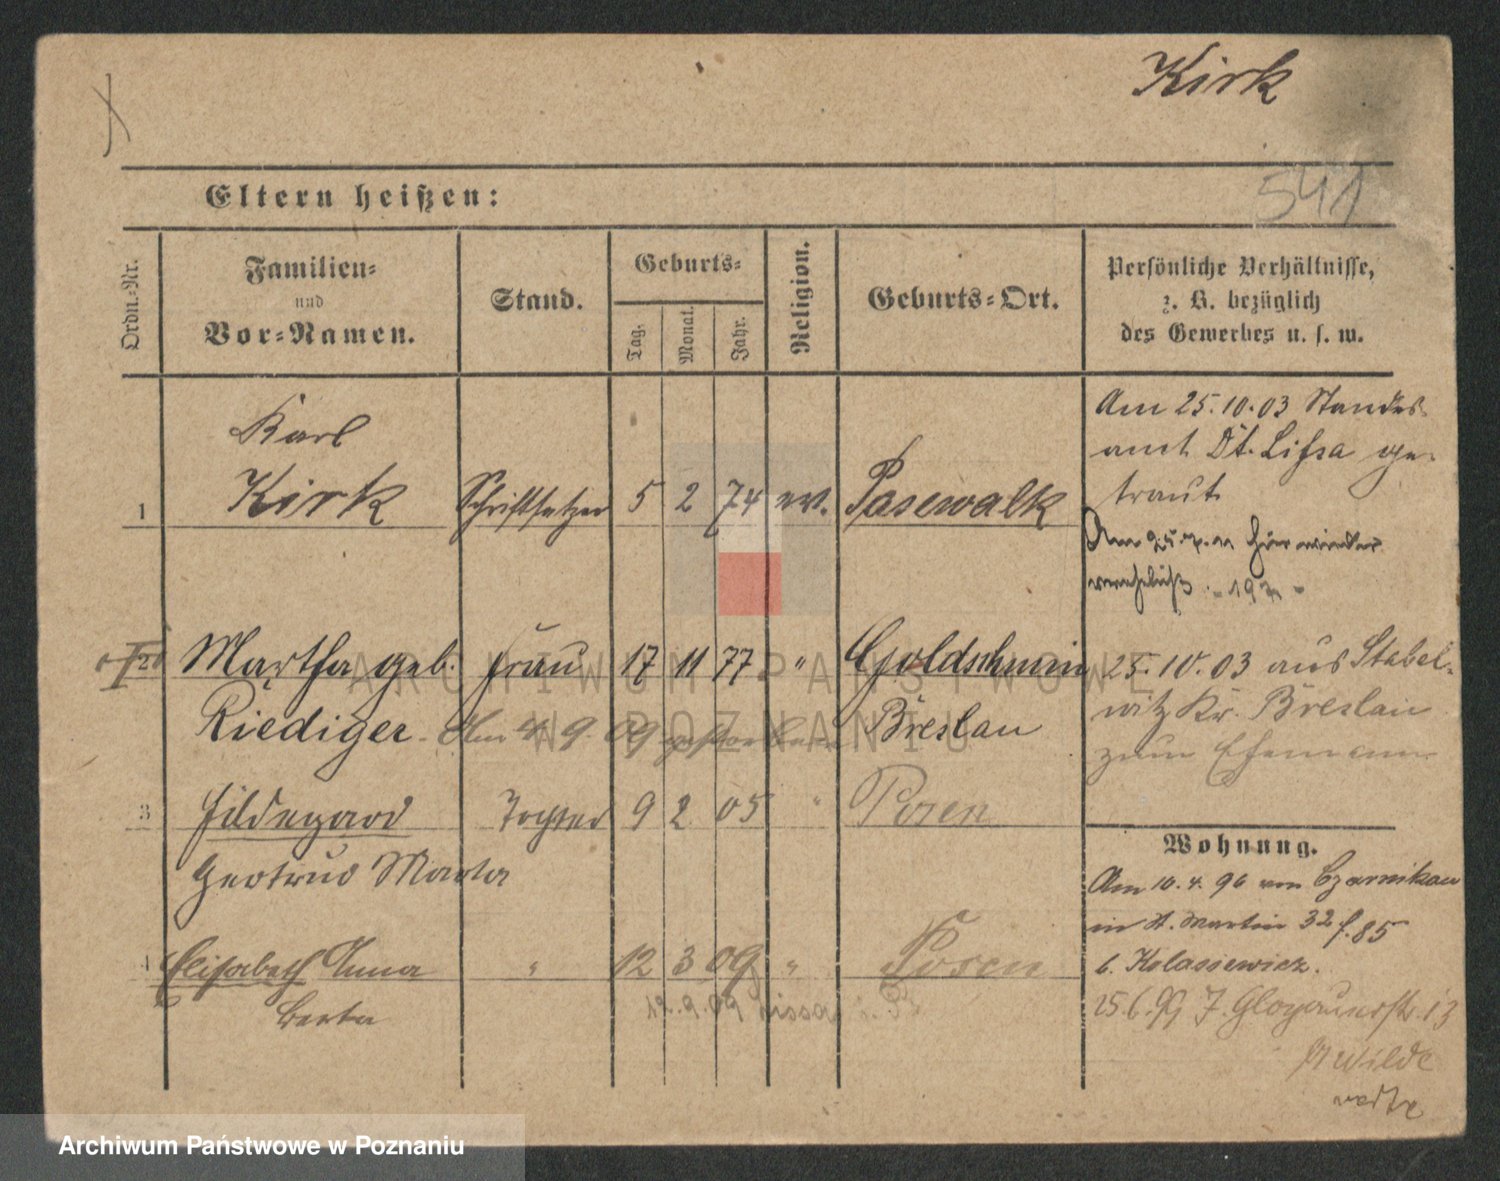 Kirk
541
Eltern heißen:
Ordn.-Nr.
Familien-
und
Vor-Namen.
Stand.
Geburts-
Tag.
Monat.
Jahr.
Religion.
Geburts-Ort.
Persönliche Verhältnisse,
z. B. bezüglich
des Gewerbes u. s. w.
Karl
1 Kirk Schriftsetzer 5 2 74 ev. Pasewalk
Am 25.10.03 Standes-
amt Dt. Lissa ge-
traut
Am 25. hier wieder
verehelicht
2 Martha geb. Frau 17 11 77 " Goldschmin
Riediger Am 9. 09 gestorben Breslau
25.10.03 aus Stabel-
witz Kr. Breslau
zum Ehemann
3 Hildegard Tochter 9 2 05 " Posen
Gertrud Marta
4 Elisabeth Anna " 12 3 09 " Posen
Berta
12.9.09 Lissa i. P.
Wohnung.
Am 10.4.96 von Czarnikau
in St. Martin 32 f. 85
b. Kolasiewicz.
25.6.99 J. Glogauerstr. 13
Wilde
ARCHIWUM PAŃSTWOWE
W POZNANIU
Archiwum Państwowe w Poznaniu